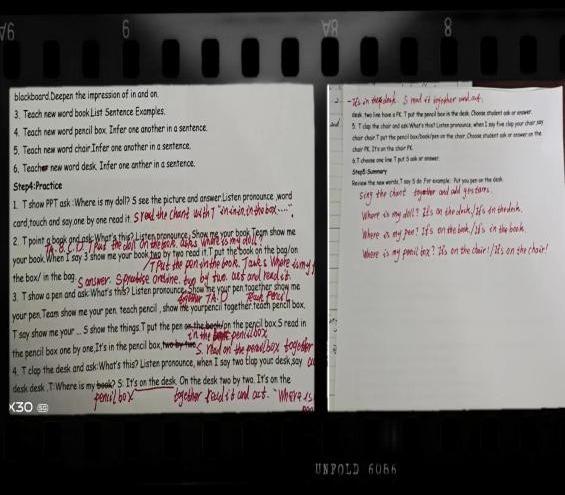 6
8
blackboard.Deepen the impression of in and on.
3. Teach new word book.List Sentence Examples.
4. Teach new word pencil box. Infer one another in a sentence.
5. Teach new word chair.Infer one another in a sentence.
6. Teacher new word desk. Infer one anther in a sentence.
Step4:Practice
1. T show PPT ask :Where is my doll? S see the picture and answer.Listen pronounce ,word
card,touch and say,one by one read it. S read the chant with T "in in in, in the box....".
2. T point a book and ask:What's this? Listen pronounce, Show me your book.Team show me
T put the doll on the book. asks Where is my doll?
your book.When I say 3 show me your book,two by two read it.T put the book on the bag/on
T put the pen in the book. T asks Where is my
the box/ in the bag. S answer. two by two. act and read it.
3. T show a pen and ask:What's this? Listen pronounce, Show me your pen,together show me
Teach pencil
your pen,Team show me your pen. teach pencil , show me yourpencil together,teach pencil box.
T say show me your ... S show the things.T put the pen on the book/on the pencil box.S read in
in the pencilbox
the pencil box one by one,It's in the pencil box,two by two S. read on the pencilbox together
4. T clap the desk and ask:What's this? Listen pronounce, when I say two clap your desk,say
desk desk .T:Where is my book? S: It's on the desk. On the desk two by two. It's on the
pencil box together read it and act. "Where is
X30 5G
- It's in the desk. S read it together and act.
desk. two line have a PK. T put the pencil box in the desk. Choose student ask or answer.
5. T clap the chair and ask:What's this? Listen pronounce, when I say five clap your chair,say
chair chair.T put the pencil box/book/pen on the chair. Choose student ask or answer on the
chair PK. It's on the chair PK.
6.T choose one line T put S ask or answer.
Step5:Summary
Review the new words,T say S do. For example: Put you pen on the desk.
Sing the chant together and add gestures.
Where is my doll? It's on the desk./It's in the desk.
Where is my pen? It's on the book./It's in the book.
Where is my pencil box? It's on the chair!/It's on the chair!
UNFOLD 6086